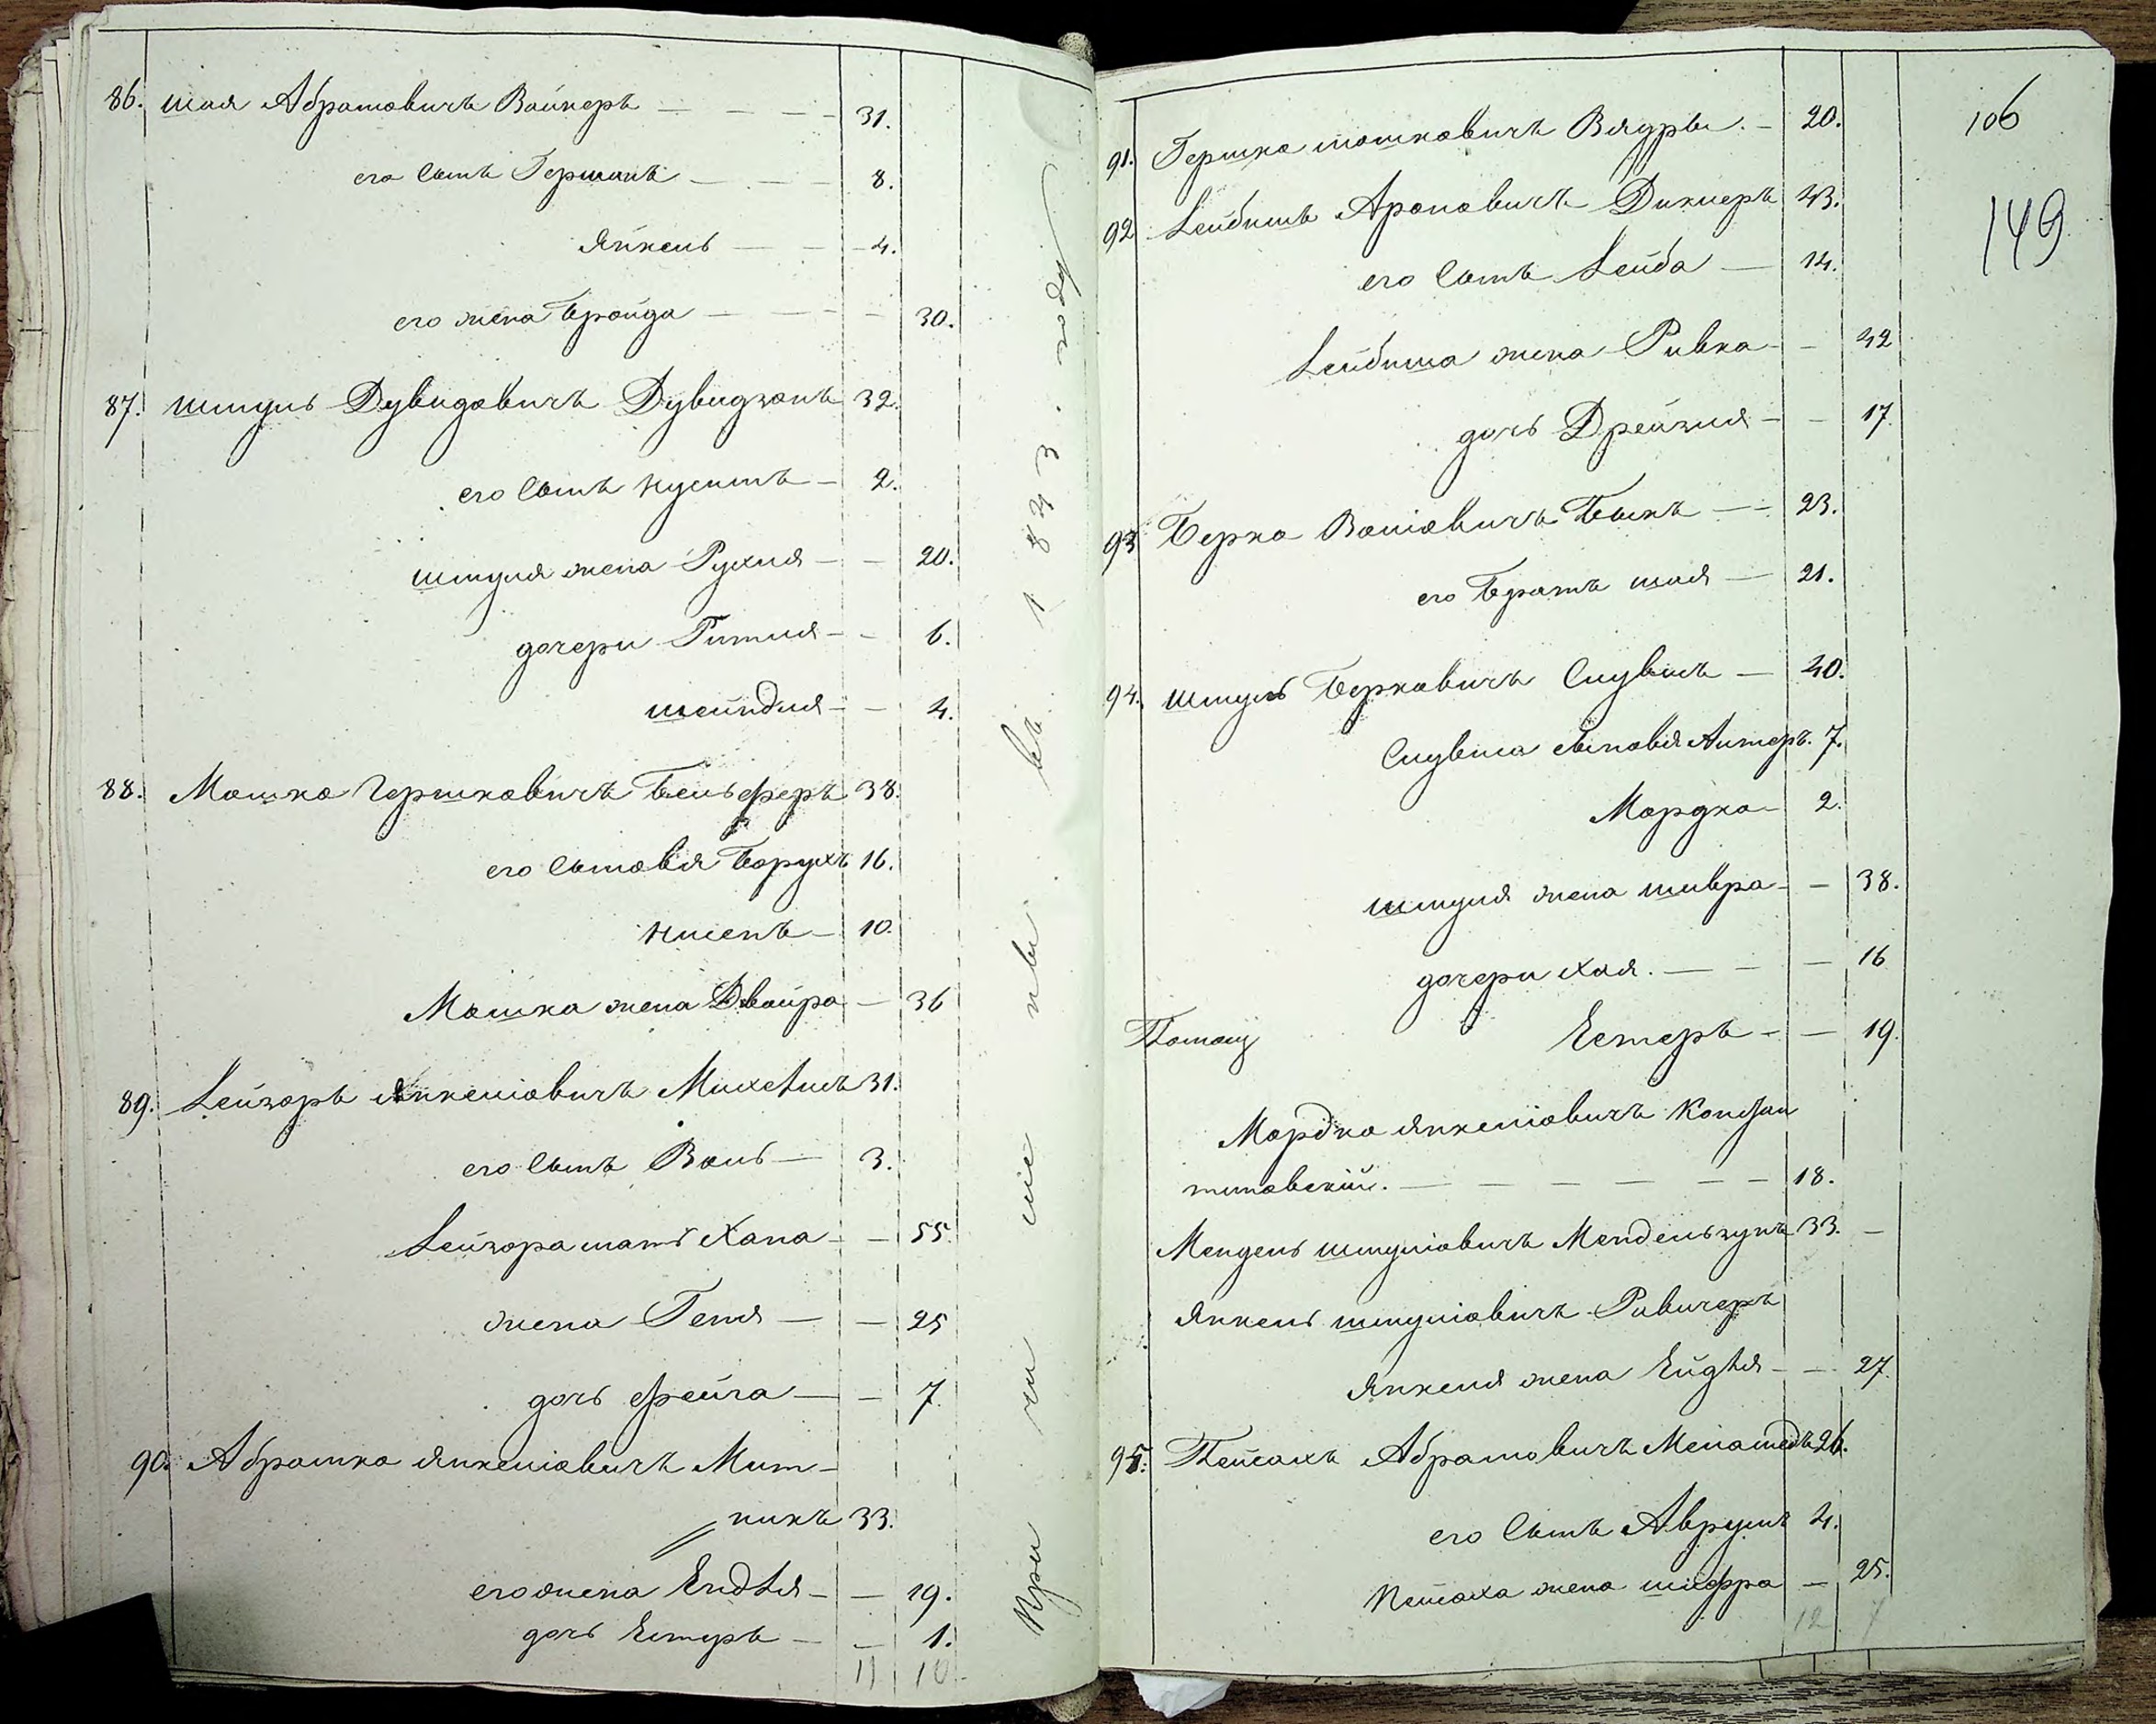 86. Шая Абрамовичъ Вайнеръ — — — — 31.
его сынъ Гершонъ — — — 8.
Янкель — — — 4.
его жена Бройда — — — — 30.
87. Шмуль Дувидовичъ Дувидзонъ 32.
его сынъ Нусимъ — 2.
Шмуля жена Рухля — — 20.
дочери Гитля — — 6.
Шейндля — — 4.
88. Мошко Гершковичъ Бельферъ 38.
его сыновья Борухъ 16.
Нисенъ — 10.
Мошка жена Двойра — 36
89. Лейзоръ Янкеліовичъ
31.
его сынъ Воль — 3.
Лейзора мать Хана — — 55.
жена Геня — — 25
дочь Фейга — — 7.
90. Абрамко Янкеліовичъ Мит-
никъ 33.
его жена Ендля — — 19.
дочь Естеръ — — 1.
11 10
При числе нвы въ 1843 году
106
149
91. Гершко Мошковичъ Вядры. — 20.
92 Лейбишъ Ароновичъ Дикнеръ 43.
его сынъ Лейба — 14.
Лейбиша жена Ривка — — 42
дочь Дрейзля — — 17.
93 Берко Воліовичъ Быкъ — — 23.
его братъ Шая — 21.
94. Шмуль Берковичъ
— 40.
сыновья Алтеръ. 7.
Мордко — 2.
Шмуля жена Шивра — — 38.
дочери Хая. — — — 16
Естеръ — — 19.
Мордко Янкеліовичъ Констан
тиновскій. — — — — — — 18.
Мендель Шмуліовичъ Мендельзунъ 33. —
Янкель Шмуліовичъ Ривичеръ
Янкеля жена Ендля — — 27.
95. Пейсахъ Абрамовичъ Меламедъ 26.
его сынъ Аврумъ 4.
Пейсаха жена Шифра — 25.
12 7